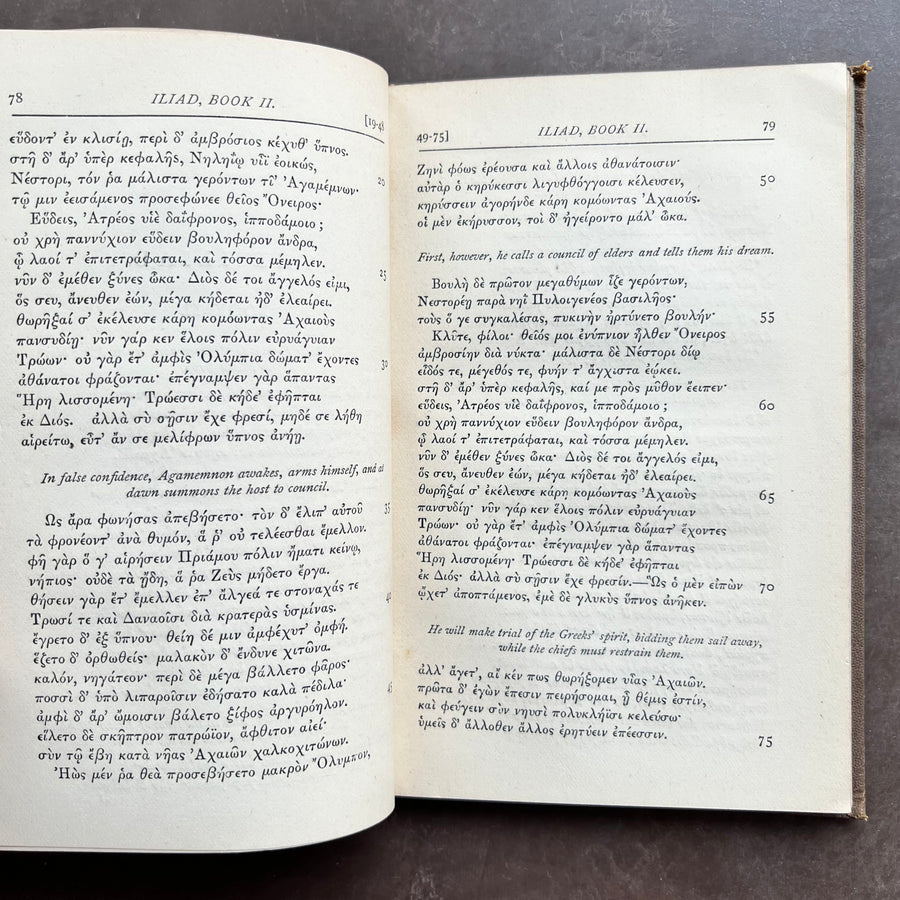 78
ILIAD, BOOK II.
[19-48
εὕδοντ' ἐν κλισίῃ, περὶ δ' ἀμβρόσιος κέχυθ' ὕπνος.
στῆ δ' ἄρ' ὑπὲρ κεφαλῆς, Νηληίῳ υἷι ἐοικώς,
Νέστορι, τόν ῥα μάλιστα γερόντων τῖ' Ἀγαμέμνων· 20
τῷ μιν ἐεισάμενος προσεφώνεε θεῖος Ὄνειρος·
Εὕδεις, Ἀτρέος υἱὲ δαΐφρονος, ἱπποδάμοιο;
οὐ χρὴ παννύχιον εὕδειν βουληφόρον ἄνδρα,
ᾧ λαοί τ' ἐπιτετράφαται, καὶ τόσσα μέμηλεν.
νῦν δ' ἐμέθεν ξύνες ὦκα· Διὸς δέ τοι ἄγγελός εἰμι, 25
ὅς σευ, ἄνευθεν ἐών, μέγα κήδεται ἠδ' ἐλεαίρει.
θωρῆξαί σ' ἐκέλευσε κάρη κομόωντας Ἀχαιοὺς
πανσυδίῃ· νῦν γάρ κεν ἕλοις πόλιν εὐρυάγυιαν
Τρώων· οὐ γὰρ ἔτ' ἀμφὶς Ὀλύμπια δώματ' ἔχοντες
ἀθάνατοι φράζονται· ἐπέγναμψεν γὰρ ἅπαντας 30
Ἥρη λισσομένη· Τρώεσσι δὲ κήδε' ἐφῆπται
ἐκ Διός. ἀλλὰ σὺ σῇσιν ἔχε φρεσί, μηδέ σε λήθη
αἱρείτω, εὖτ' ἄν σε μελίφρων ὕπνος ἀνήῃ.
In false confidence, Agamemnon awakes, arms himself, and at
dawn summons the host to council.
Ὣς ἄρα φωνήσας ἀπεβήσετο· τὸν δ' ἔλιπ' αὐτοῦ 35
τὰ φρονέοντ' ἀνὰ θυμόν, ἅ ῥ' οὐ τελέεσθαι ἔμελλον.
φῆ γὰρ ὅ γ' αἱρήσειν Πριάμου πόλιν ἤματι κείνῳ,
νήπιος· οὐδὲ τὰ ᾔδη, ἅ ῥα Ζεὺς μήδετο ἔργα.
θήσειν γὰρ ἔτ' ἔμελλεν ἐπ' ἄλγεά τε στοναχάς τε
Τρωσί τε καὶ Δαναοῖσι διὰ κρατερὰς ὑσμίνας. 40
ἔγρετο δ' ἐξ ὕπνου· θείη δέ μιν ἀμφέχυτ' ὀμφή.
ἕζετο δ' ὀρθωθείς· μαλακὸν δ' ἔνδυνε χιτῶνα.
καλόν, νηγάτεον· περὶ δὲ μέγα βάλλετο φᾶρος·
ποσσὶ δ' ὑπὸ λιπαροῖσιν ἐδήσατο καλὰ πέδιλα·
ἀμφὶ δ' ἄρ' ὤμοισιν βάλετο ξίφος ἀργυρόηλον. 45
εἵλετο δὲ σκῆπτρον πατρώϊον, ἄφθιτον αἰεί·
σὺν τῷ ἔβη κατὰ νῆας Ἀχαιῶν χαλκοχιτώνων.
Ἠὼς μέν ῥα θεὰ προσεβήσετο μακρὸν Ὄλυμπον,
49-75]
ILIAD, BOOK II.
79
Ζηνὶ φόως ἐρέουσα καὶ ἄλλοις ἀθανάτοισιν·
αὐτὰρ ὁ κηρύκεσσι λιγυφθόγγοισι κέλευσεν, 50
κηρύσσειν ἀγορήνδε κάρη κομόωντας Ἀχαιούς.
οἱ μὲν ἐκήρυσσον, τοὶ δ' ἠγείροντο μάλ' ὦκα.
First, however, he calls a council of elders and tells them his dream.
Βουλὴ δὲ πρῶτον μεγαθύμων ἷζε γερόντων,
Νεστορέῃ παρὰ νηῒ Πυλοιγενέος βασιλῆος·
τοὺς ὅ γε συγκαλέσας, πυκινὴν ἠρτύνετο βουλήν· 55
Κλῦτε, φίλοι· θεῖός μοι ἐνύπνιον ἦλθεν Ὄνειρος
ἀμβροσίην διὰ νύκτα· μάλιστα δὲ Νέστορι δίῳ
εἶδός τε, μέγεθός τε, φυήν τ' ἄγχιστα ἐῴκει.
στῆ δ' ἄρ' ὑπὲρ κεφαλῆς, καί με πρὸς μῦθον ἔειπεν·
εὕδεις, Ἀτρέος υἱὲ δαΐφρονος, ἱπποδάμοιο; 60
οὐ χρὴ παννύχιον εὕδειν βουληφόρον ἄνδρα,
ᾧ λαοί τ' ἐπιτετράφαται, καὶ τόσσα μέμηλεν.
νῦν δ' ἐμέθεν ξύνες ὦκα· Διὸς δέ τοι ἄγγελός εἰμι,
ὅς σευ, ἄνευθεν ἐών, μέγα κήδεται ἠδ' ἐλεαίρει.
θωρῆξαί σ' ἐκέλευσε κάρη κομόωντας Ἀχαιοὺς 65
πανσυδίῃ· νῦν γάρ κεν ἕλοις πόλιν εὐρυάγυιαν
Τρώων· οὐ γὰρ ἔτ' ἀμφὶς Ὀλύμπια δώματ' ἔχοντες
ἀθάνατοι φράζονται· ἐπέγναμψεν γὰρ ἅπαντας
Ἥρη λισσομένη· Τρώεσσι δὲ κήδε' ἐφῆπται
ἐκ Διός· ἀλλὰ σὺ σῇσιν ἔχε φρεσίν.—Ὣς ὁ μὲν εἰπὼν 70
ᾤχετ' ἀποπτάμενος, ἐμὲ δὲ γλυκὺς ὕπνος ἀνῆκεν.
He will make trial of the Greeks' spirit, bidding them sail away,
while the chiefs must restrain them.
ἀλλ' ἄγετ', αἴ κέν πως θωρήξομεν υἷας Ἀχαιῶν.
πρῶτα δ' ἐγὼν ἔπεσιν πειρήσομαι, ᾗ θέμις ἐστίν,
καὶ φεύγειν σὺν νηυσὶ πολυκλήϊσι κελεύσω·
ὑμεῖς δ' ἄλλοθεν ἄλλος ἐρητύειν ἐπέεσσιν. 75